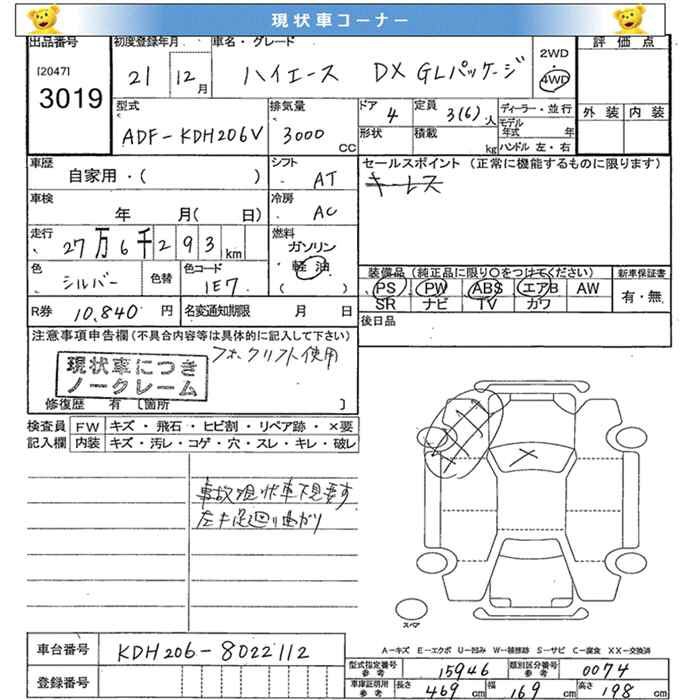 現状車コーナー
出品番号 初度登録年月 車名・グレード 2WD 評価点
[2047] 3019 21 12月 ハイエース DX GLパッケージ 4WD
型式 排気量 ドア 定員 ディーラー・並行 外装 内装
ADF-KDH206V 3000 CC 4 3(6)人 モデル年式 年
形状 積載 kg ハンドル 左・右
車歴 シフト セールスポイント(正常に機能するものに限ります)
自家用・( ) AT キーレス
車検 冷房
年 月( 日) AC
走行 燃料
27万6千293km ガソリン
軽油
( )
色 シルバー 色替 色コード 1E7
装備品(純正品に限り○をつけてください) 新車保証書
PS PW ABS エアB AW 有・無
SR ナビ TV カワ
R券 10,840円 名変通知期限 月 日
後日品
注意事項申告欄(不具合内容等は具体的に記入して下さい)
フォークリフト使用
現状車につき
ノークレーム
修復歴 有 [箇所 ]
検査員 FW キズ・飛石・ヒビ割・リペア跡・×要
記入欄 内装 キズ・汚レ・コゲ・穴・スレ・キレ・破レ
事故現状車下見要す
左右足廻り曲がり
スペア
A-キズ E-エクボ U-凹み W-補修跡 S-サビ C-腐食 XX-交換済
車台番号 KDH206-8022112
登録番号
型式指定番号 参考 15946 類別区分番号 参考 0074
車庫証明用 参考 長さ 469cm 幅 169cm 高さ 198cm